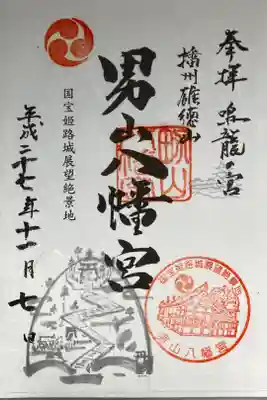 奉拝
播州雄徳山
男山八幡宮
国宝姫路城展望絶景地
平成二十七年十一月七日
男山八幡宮